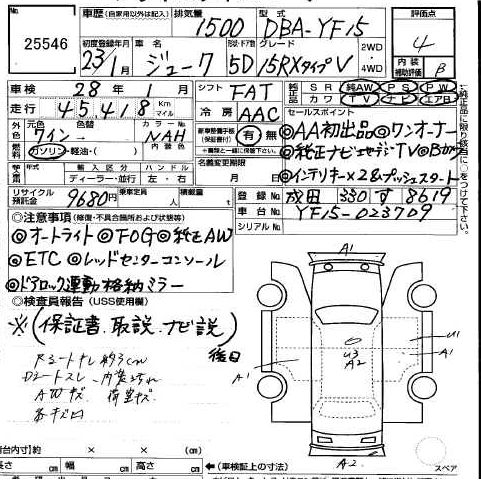 25546
車歴 (自家用以外は記入)
排気量 1500
型式 DBA-YF15
評価点 4
内装補助評価 B
初度登録年月 23/1
車名 ジューク
形・ドア数 5D
グレード 15RXタイプV
2WD
4WD
車検 28年1月
シフト FAT
純正品 SR 純AW PS PW
カワ TV ナビ エアB
走行 45,418 Km マイル
冷房 AAC
セールスポイント
外色 元色 ワイン 色替
カラーNo. NAH
内装色
新車整備手帳(保証書) 有 無
◎AA初出品◎ワンオーナー
燃料 ガソリン・軽油・( )
名義変更期限
◎純正ナビ TV◎Bカメ
輸入区分 ハンドル
ディーラー・並行 左・右
月 日
◎インテリキー×2&プッシュスタート
リサイクル預託金 9680円
乗車定員 人
積載量
登録No. 成田 330 す 8619
車台No. YF15-023709
シリアルNo.
◎注意事項(修復・不具合箇所および状態等)
◎オートライト◎FOG◎純正AW
◎ETC◎レッドセンターコンソール
◎ドアロック連動格納ミラー
◎検査員報告(USS使用欄)
※(保証書.取説.ナビ説)
後日
Rシートキレ約3cm
Dシートスレ 内装汚れ
AWキズ 荷室キズ
各キズ凹
A1
U1
A1
A1
U3
A2
A2
スペア
(車検証上の寸法)
荷台内寸 約 × × (cm)
長さ cm 幅 cm 高さ cm